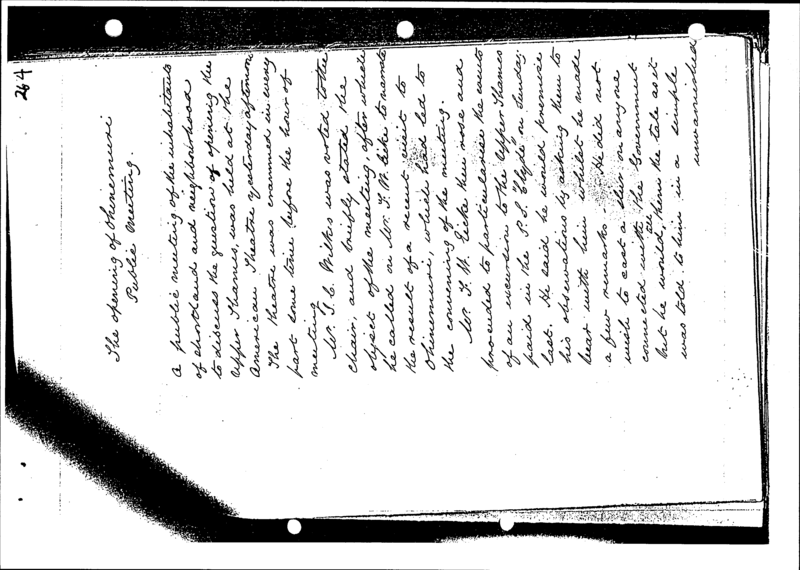 264
The opening of Ohinemuri
Public Meeting.
A public meeting of the inhabitants
of Shortland and neighbourhood
to discuss the question of opening the
Upper Thames, was held at the
American Theatre yesterday afternoon
The theatre was crammed in every
part some time before the hour of
meeting
Mr. J. C. Wilkes was voted to the
chair, and briefly stated the
object of the meeting, after which
he called on Mr. T. W. Eicke to narrate
the result of a recent visit to
Ohinemuri, which had led to
the convening of the meeting.
Mr. T. W. Eicke then rose and
proceeded to particularise the events
of an excursion to the Upper Thames
paid in the P.S. "Clyde" on Sunday
last. He said he would premise
his observations by asking them to
bear with him whilst he made
a few remarks He did not
wish to cast a slur on anyone
connected with the Government
but he would tell them the tale as it
was told to him in a simple
unvarnished